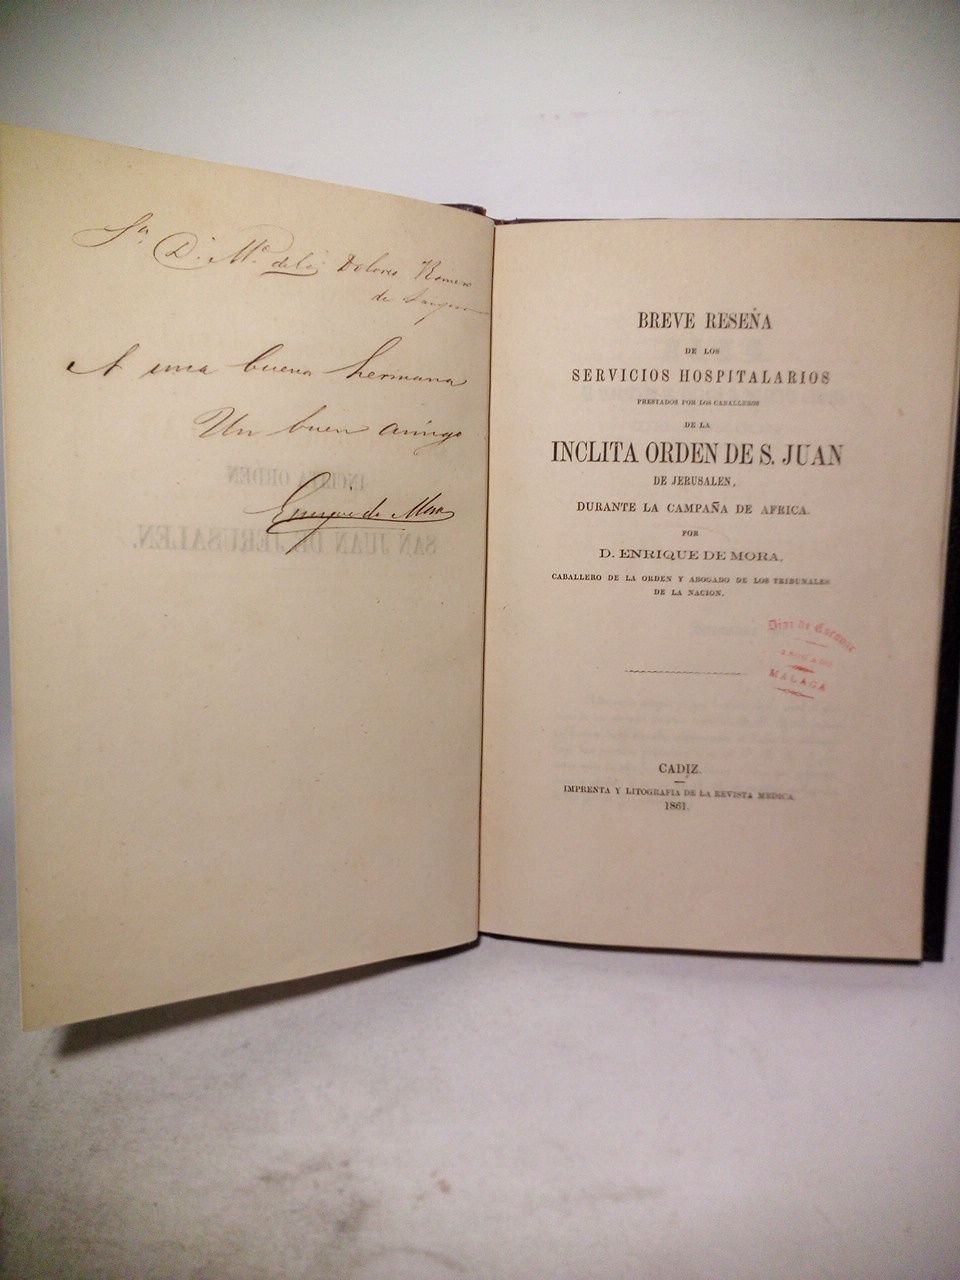 Sra.
Da. Ma. de los Dolores Romero
de
A una buena hermana
Un buen amigo
Enrique de Mora
INCLITA ORDEN
SAN JUAN DE JERUSALEN.
BREVE RESEÑA
DE LOS
SERVICIOS HOSPITALARIOS
PRESTADOS POR LOS CABALLEROS
DE LA
INCLITA ORDEN DE S. JUAN
DE JERUSALEN,
DURANTE LA CAMPAÑA DE AFRICA.
POR
D. ENRIQUE DE MORA,
CABALLERO DE LA ORDEN Y ABOGADO DE LOS TRIBUNALES
DE LA NACION.
Diaz de Escovar
ABOGADO
MALAGA
CADIZ.
IMPRENTA Y LITOGRAFIA DE LA REVISTA MEDICA.
1861.